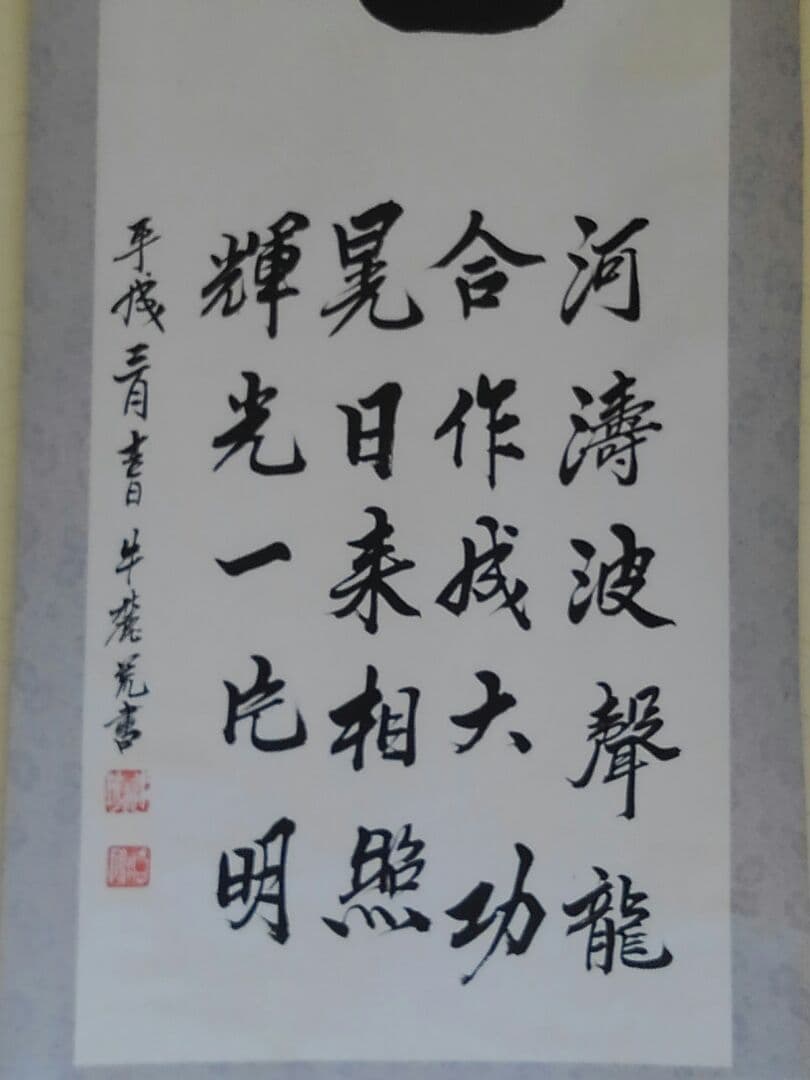 河濤波聲龍
合作成大功
晃日来相照
輝光一片明
平成 三月 吉日 牛麓 書